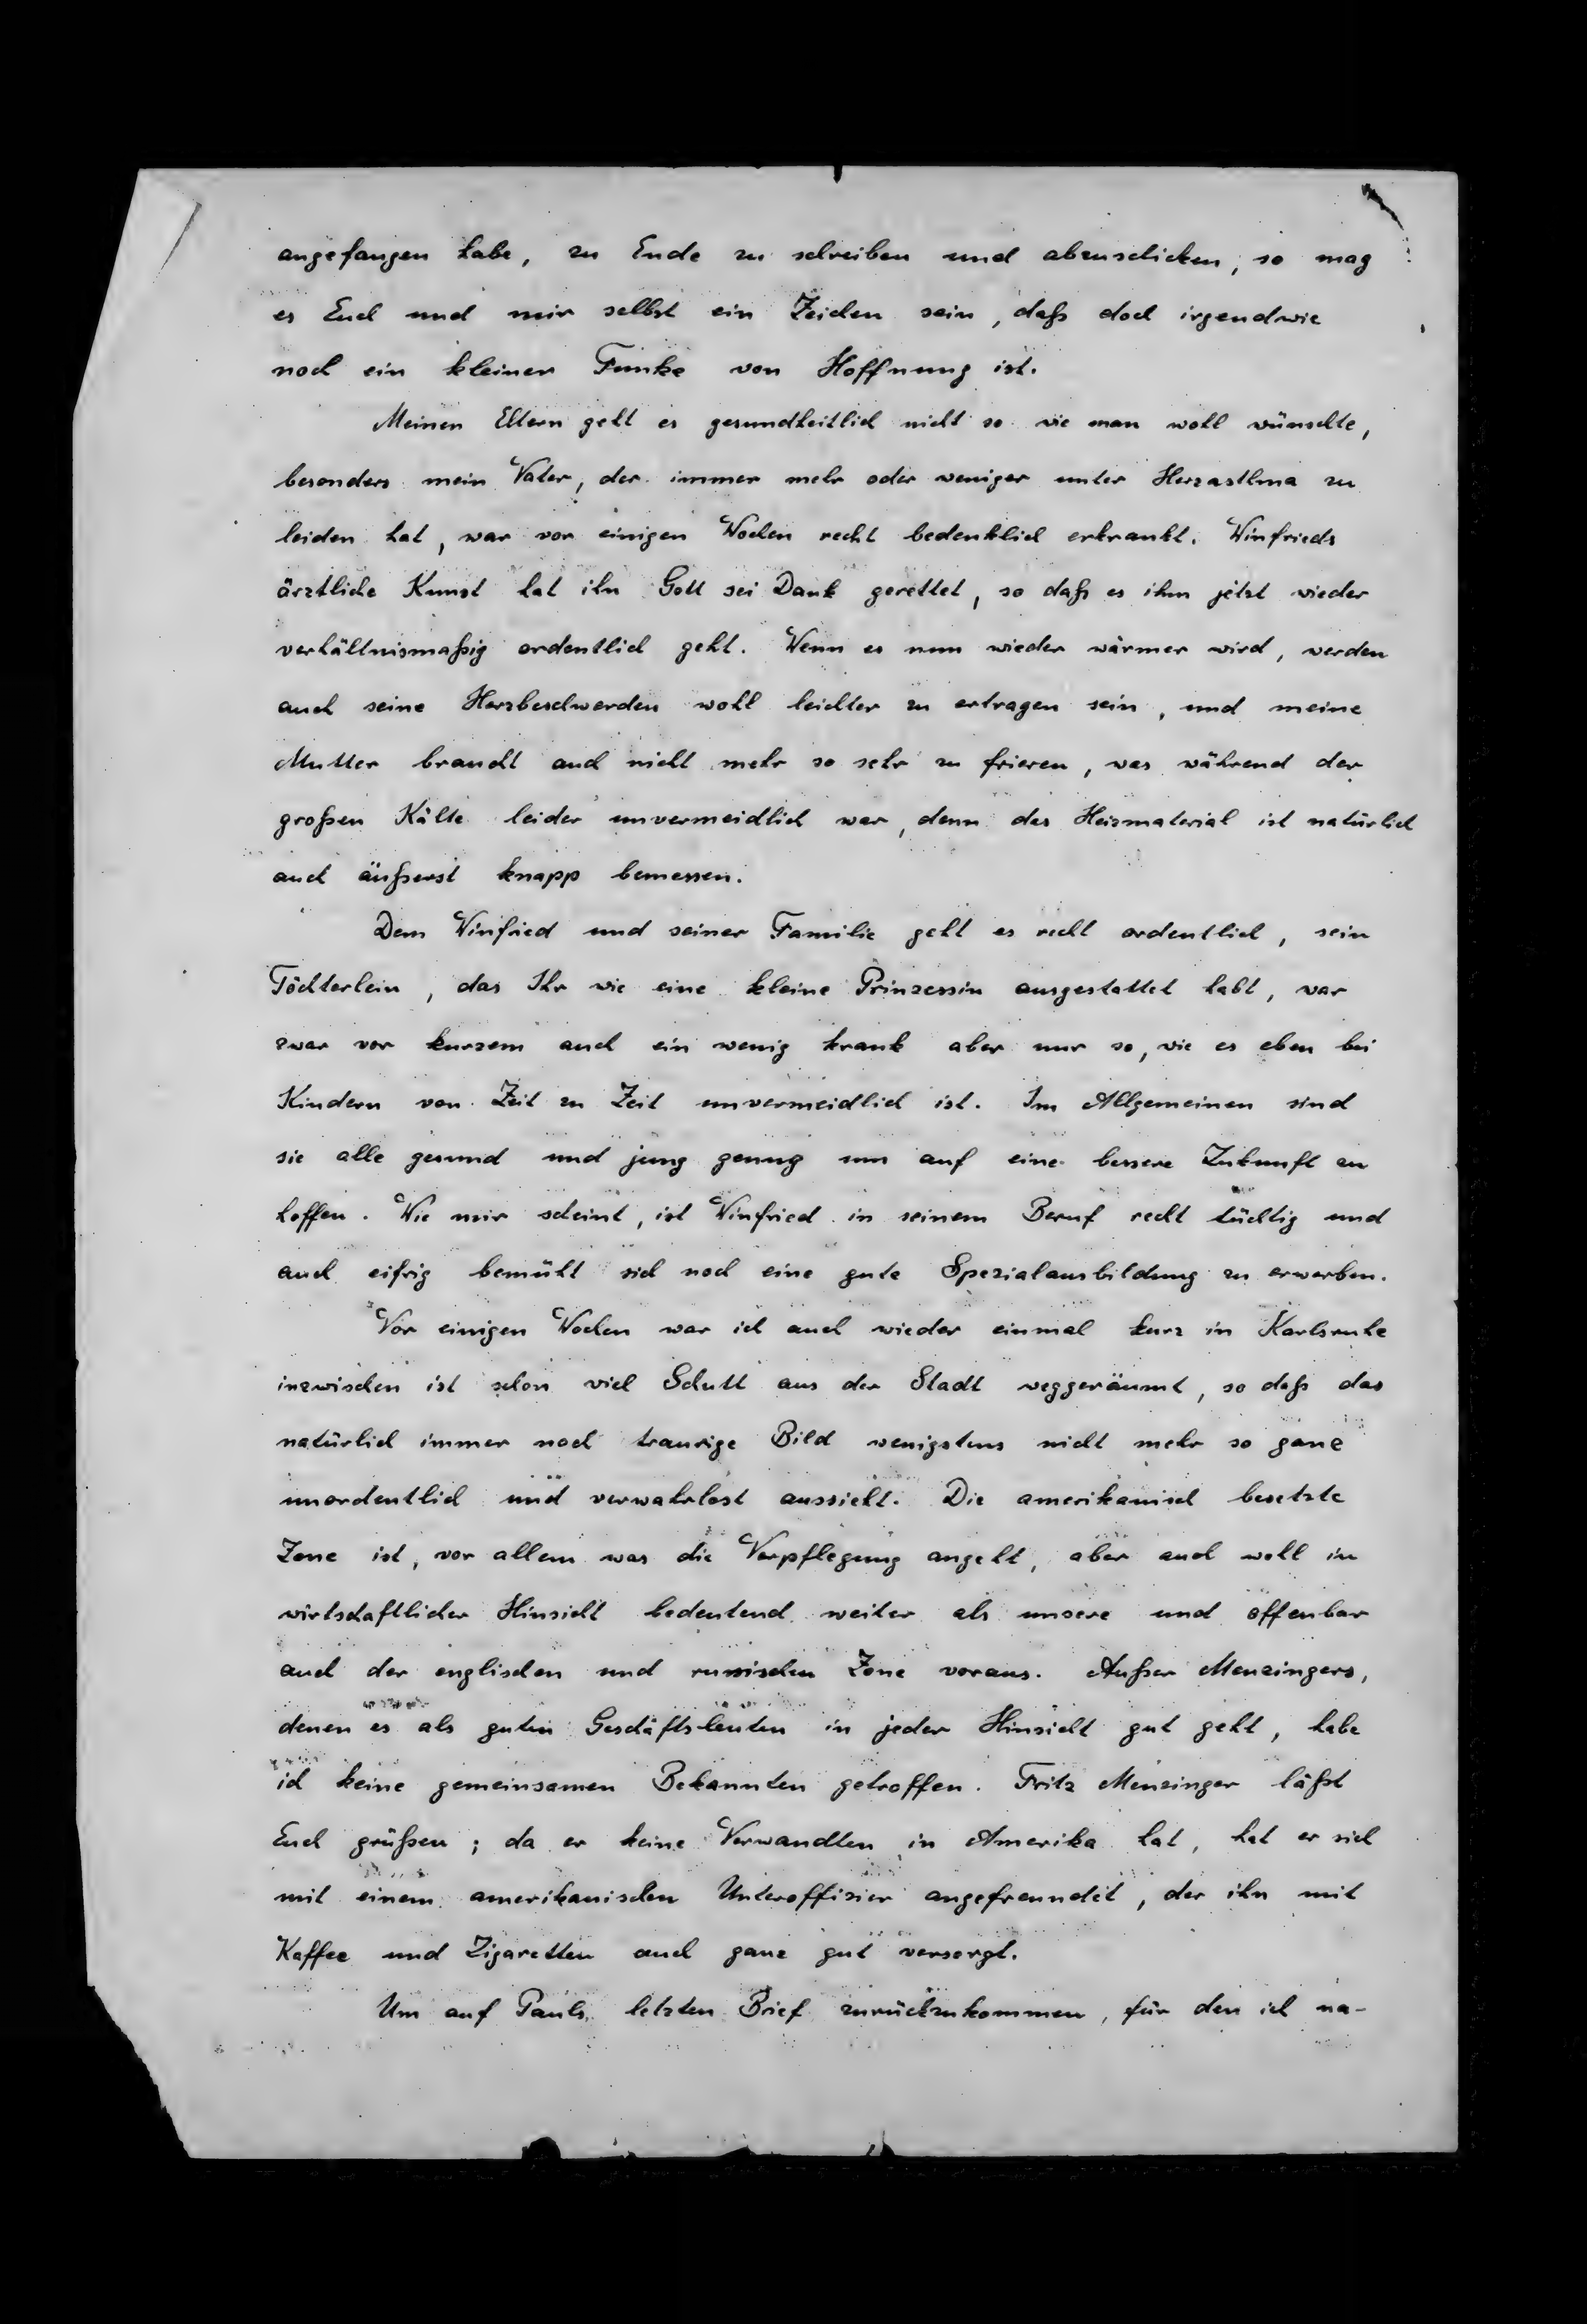 angefangen habe, zu Ende zu schreiben und abzuschicken, so mag
es Euch und mir selbst ein Zeichen sein, daß doch irgendwie
noch ein kleiner Funke von Hoffnung ist.
Meinen Eltern geht es gesundheitlich nicht so wie man wohl wünschte,
besonders mein Vater, der immer mehr oder weniger unter Herzasthma zu
leiden hat, war vor einigen Wochen recht bedenklich erkrankt. Winfrieds
ärztliche Kunst hat ihn Gott sei Dank gerettet, so daß es ihm jetzt wieder
verhältnismaßig ordentlich geht. Wenn es nun wieder wärmer wird, werden
auch seine Herzbeschwerden wohl leichter zu ertragen sein, und meine
Mutter braucht auch nicht mehr so sehr zu frieren, was während der
großen Kälte leider unvermeidlich war, denn das Heizmaterial ist natürlich
auch äußerst knapp bemessen.
Dem Winfried und seiner Familie geht es recht ordentlich, sein
Töchterlein, das Ihr wie eine kleine Prinzessin ausgestattet habt, war
zwar vor kurzem auch ein wenig krank aber nur so, wie es eben bei
Kindern von Zeit zu Zeit unvermeidlich ist. Im Allgemeinen sind
sie alle gesund und jung genug um auf eine bessere Zukunft zu
hoffen. Wie mir scheint, ist Winfried in seinem Beruf recht tüchtig und
auch eifrig bemüht sich noch eine gute Spezialausbildung zu erwerben.
Vor einigen Wochen war ich auch wieder einmal kurz in Karlsruhe
inzwischen ist schon viel Schutt aus der Stadt weggeräumt, so daß das
natürlich immer noch traurige Bild wenigstens nicht mehr so ganz
unordentlich und verwahrlost aussieht. Die amerikanisch besetzte
Zone ist, vor allem was die Verpflegung angeht, aber auch wohl in
wirtschaftlicher Hinsicht bedeutend weiter als unsere und offenbar
auch der englischen und russischen Zone voraus. Außer Menzingers,
denen es als guten Geschäftsleuten in jeder Hinsicht gut geht, habe
ich keine gemeinsamen Bekannten getroffen. Fritz Menzinger läßt
Euch grüßen; da er keine Verwandten in Amerika hat, hat er sich
mit einem amerikanischen Unteroffizier angefreundet, der ihn mit
Kaffee und Zigaretten auch ganz gut versorgt.
Um auf Pauls letzten Brief zurückzukommen, für den ich na-